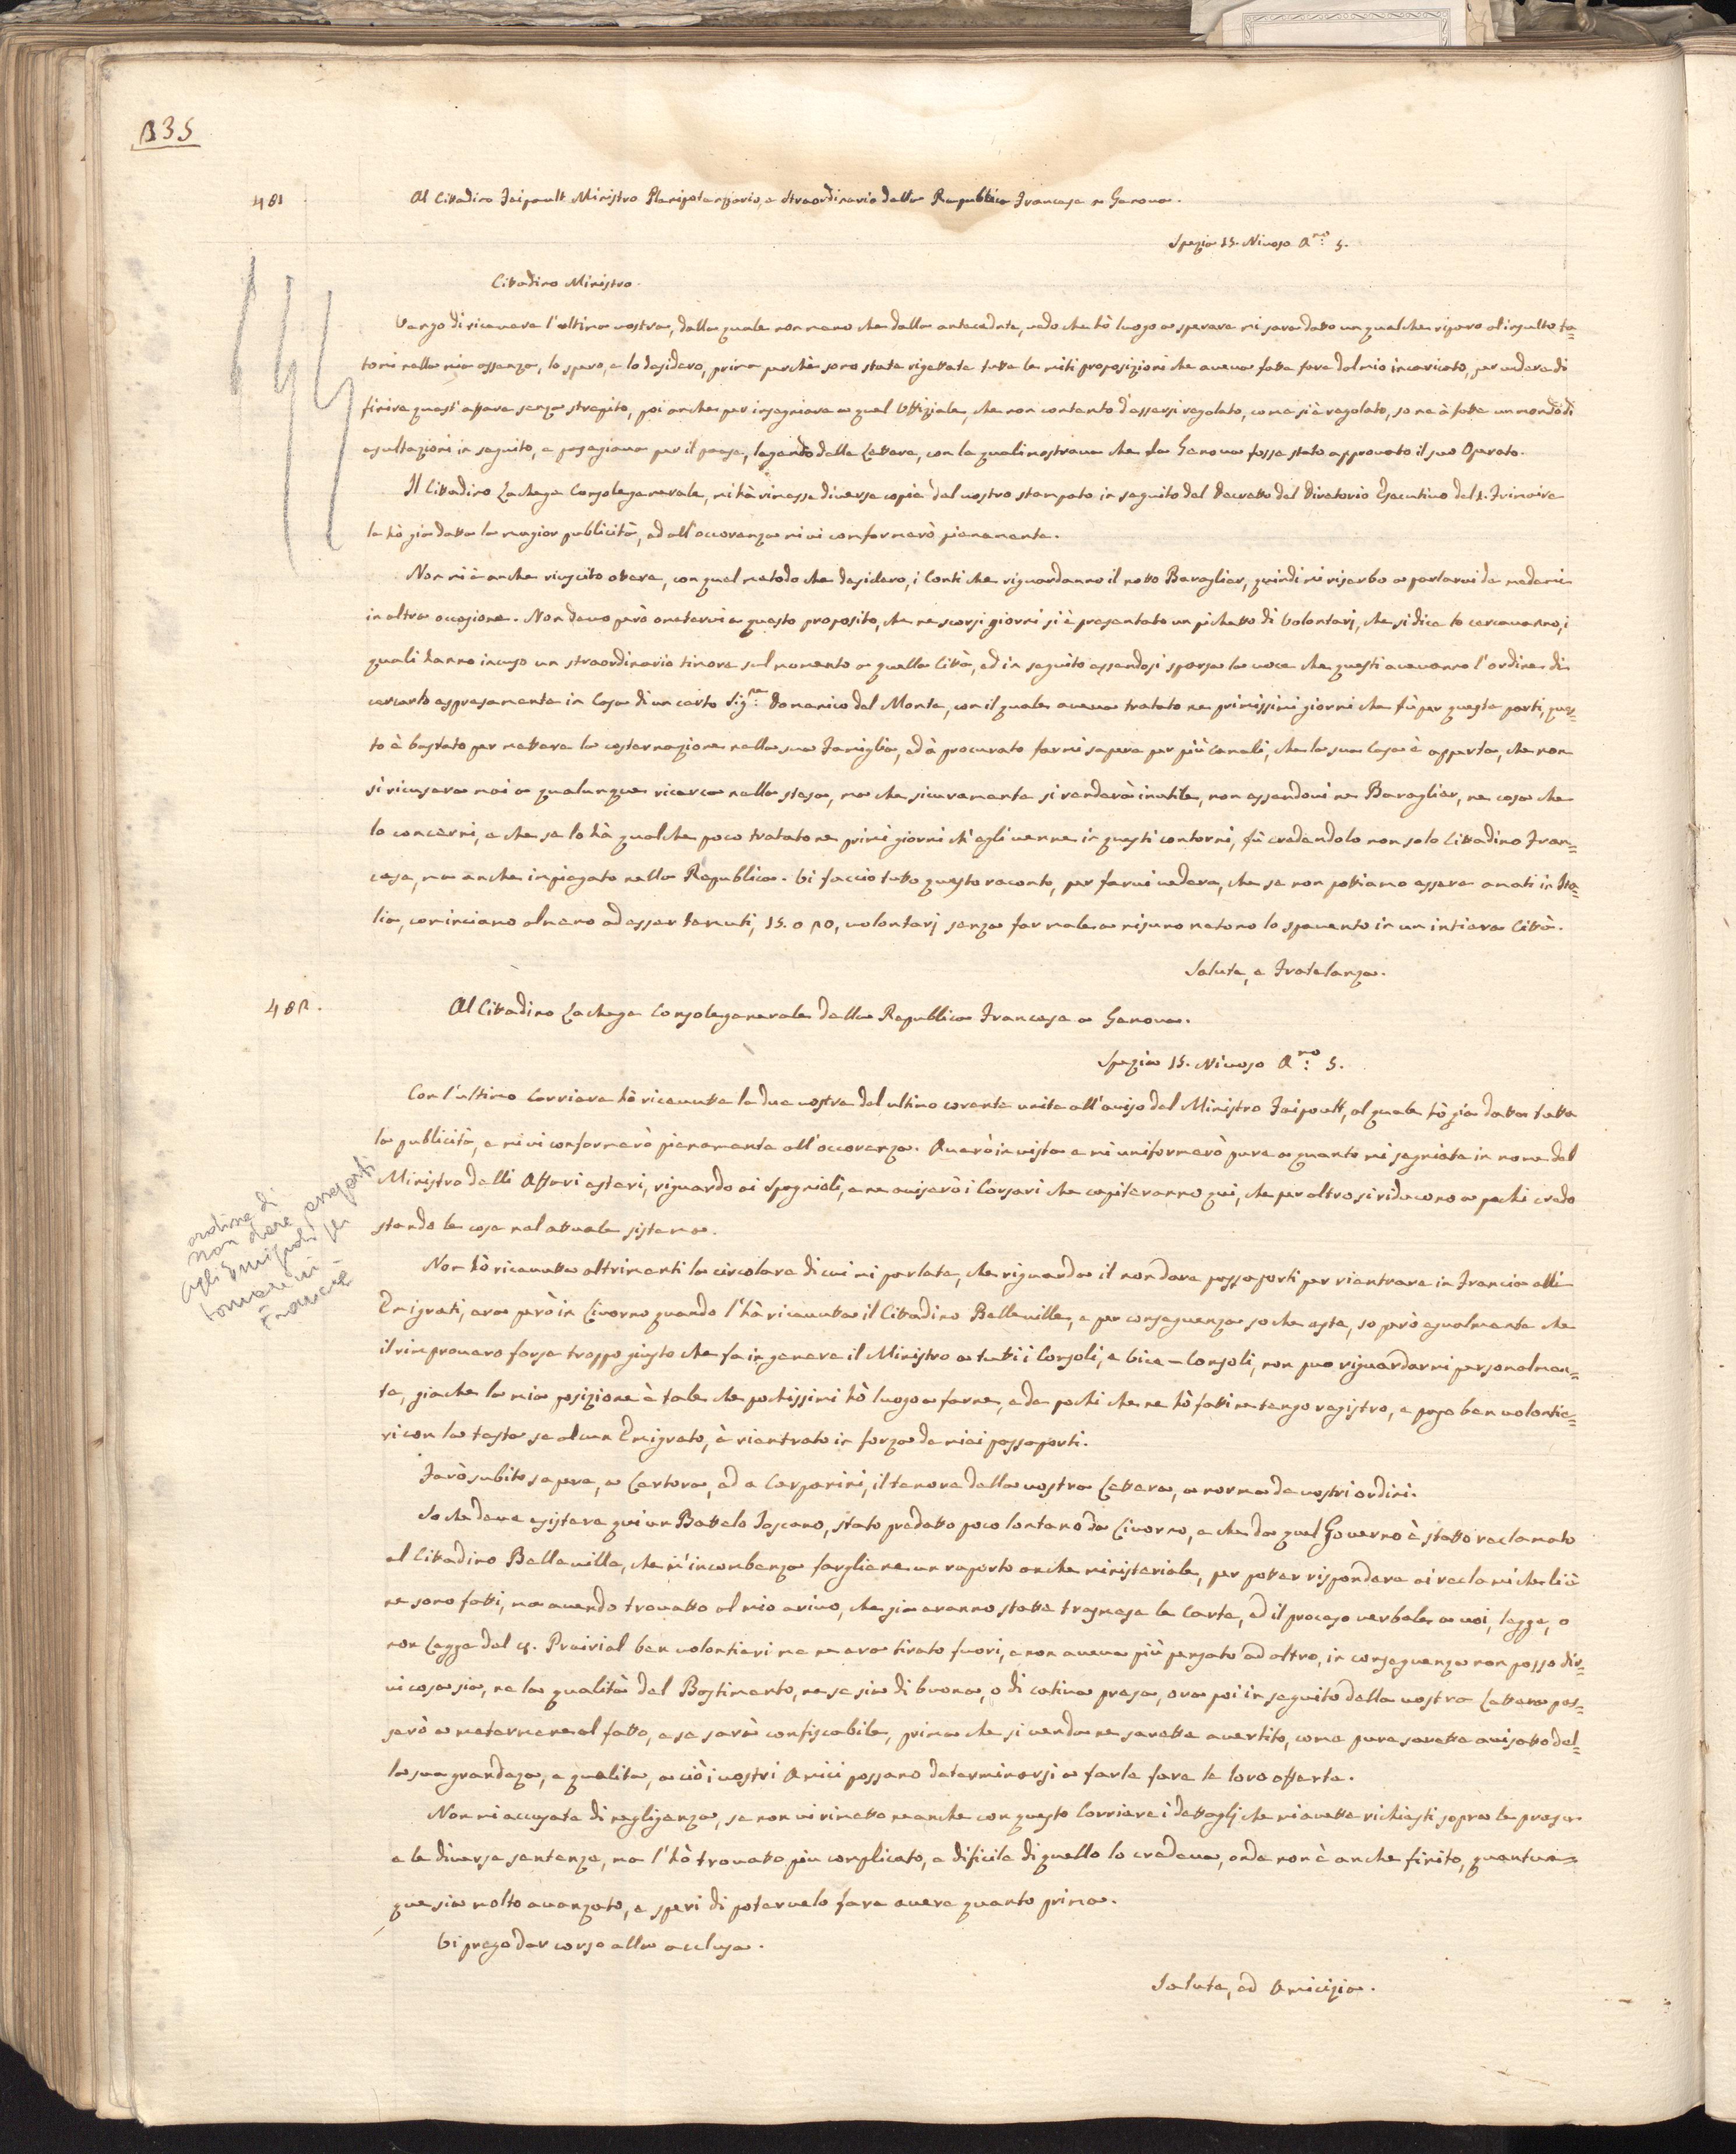 235
481
Al Cittadino Faipoult Ministro Plenipotenziario, e straordinario della Republica Francese a Genova.
Spezia 15. Nivoso Anno: 5.
Cittadino Ministro.
Vengo di ricevere l'ultima vostra, dalla quale non meno che dalla antecedente, vedo che hò luogo a sperare mi sara dato un qualche riparo al insulto fa=
tomi nella mia assenza, lo spero, e lo desidero, prima perchè sono state rigettate tutte le miti proposizioni che aveva fatte fare dal mio incaricato, per vedere di
finire quest'affare senza strepito, poi anche per insegniare a quel Uffiziale, che non contento d'essersi regolato, come si è regolato, se ne à fatte un mondo di
esultazioni in seguito, e passegiava per il paese, legendo delle Lettere, con le quali mostrava che da Genova fosse stato approvato il suo Operato.
Il Cittadino Lachege Consolegenerale, mi hà rimesse diverse copie del vostro stampato in seguito del Decretto del Diretorio Esecutivo del 1. Frimaire
le hò gia datta la magior publicità, ed all'occorenza mi vi conformerò pienamente.
Non mi è anche riuscito otere, con quel metodo che desidero, i Conti che riguardanno il notto Baraglier, quindi mi riserbo a parlarvi de medemi
in altra occasione. Non devo però ometervi a questo proposito, che ne scorsi giorni si è presentato un pichetto di Volontarj, che si dice lo cercavanno, i
quali hanno incuso un straordinario timore sul momento a quella Città, ed in seguito essendosi sparsa la voce che questi avevanno l'ordine di
cercarlo espresamente in Casa di un certo Sig.re Domenico del Monte, con il quale aveva tratato ne primissimi giorni che fù per queste parti, ques=
to è bastato per mettere la costernazione nella sua Famiglia, ed à procurato farmi sapere per più canali, che la sua Casa è apperta, che non
si ricusera mai a qualunque ricerca nella stesa, ma che sicuramente si renderà inutile, non essendovi ne Baraglier, ne cosa che
lo concerni, e che se lo hà qualche poco tratato ne primi giorni ch'egli venne in questi contorni, fù credendolo non solo Cittadino Fran=
cese, ma anche impiegato nella Republica. Vi faccio tutto questo raconto, per farvi vedere, che se non possiamo essere amati in Ita=
lia, cominciamo almeno ad esser temuti, 15. o 20, volontarj senza far male a nisuno metono lo spavento in un intiera Città.
Salute, e Fratelanza.
482.
Al Cittadino Lachege Consolegenerale della Republica Francese a Genova.
Spezia 15. Nivoso Anno: 5.
Con l'ultimo Corriere hò ricevutte le due vostre del ultimo corente unite all'aviso del Ministro Faipoult, al quale hò gia datta tutta
la publicità, e mi vi conformerò pienamente all'occorenza. Averò in vista e mi uniformerò pure a quanto mi segniate in nome del
Ministro delli Affari esteri, riguardo ai Spagnioli, e ne aviserò i Corsari che capiteranno qui, che per altro si riducono a pochi credo
stando le cose nel attuale sistema.
ordine di
non dare passaporti
agli Emigrati per
tornare in
Francia
Non hò ricevutta altrimenti la circolare di cui mi parlate, che riguarda il non dare passaporti per rientrare in Francia alli
Emigrati, era però in Livorno quando l'hà ricevutta il Cittadino Belleville, e per conseguenza so che esta, so però egualmente che
il rimprovero forse troppo giusto che fa in genere il Ministro a tutti i Consoli, e Vice-Consoli, non puo riguardarmi personalmen=
te, giache la mia posizione è tale che pochissimi hò luogo a farne, e de pochi che ne hò fatti ne tengo registro, e pago ben volontie=
ri con la testa se alcun Emigrato, è rientrato in forza de miei passaporti.
Farò subito sapere, a Cartera, ed a Carparini, il tenore della vostra Lettera, a norma de vostri ordini.
So che deve esistere qui un Battelo Toscano, stato predatto poco lontano da Livorno, e che da quel Governo è statto reclamato
al Cittadino Belleville, che m'incombenza fargliene un raporto anche ministeriale, per potter rispondere ai reclami che li è
ne sono fatti, ma avendo trovatto al mio arivo, che gia eranno statte trasmese le Carte, ed il proceso verbale a voi, legge, o
non Legge del 8. Prairial ben volontieri me ne era tirato fuori, e non aveva più pensato ad altro, in conseguenza non posso dir=
vi cosa sia, ne la qualità del Bastimento, ne se sia di buona, o di cativa presa, ora poi in seguito della vostra Lettera pas=
serò a metermene al fatto, e se sarà confiscabile, prima che si venda ne sarette avertito, come pure sarette avisatto del=
la sua grandeza, e qualita, a ciò i vostri Amici possano determinarsi a farle fare le loro offerte.
Non mi accusate di negligenza, se non vi rimetto ne anche con questo Corriere i dettaglj che mi avette richiesti sopra le prese
e le diverse sentenze, ma l'hò trovatto piu complicato, e dificile di quello lo credeva, onde non è anche finito, quantun=
que sia molto avanzato, e speri di potervelo fare avere quanto prima.
Vi prego dar corso alla acclusa.
Salute, ed Amicizia.